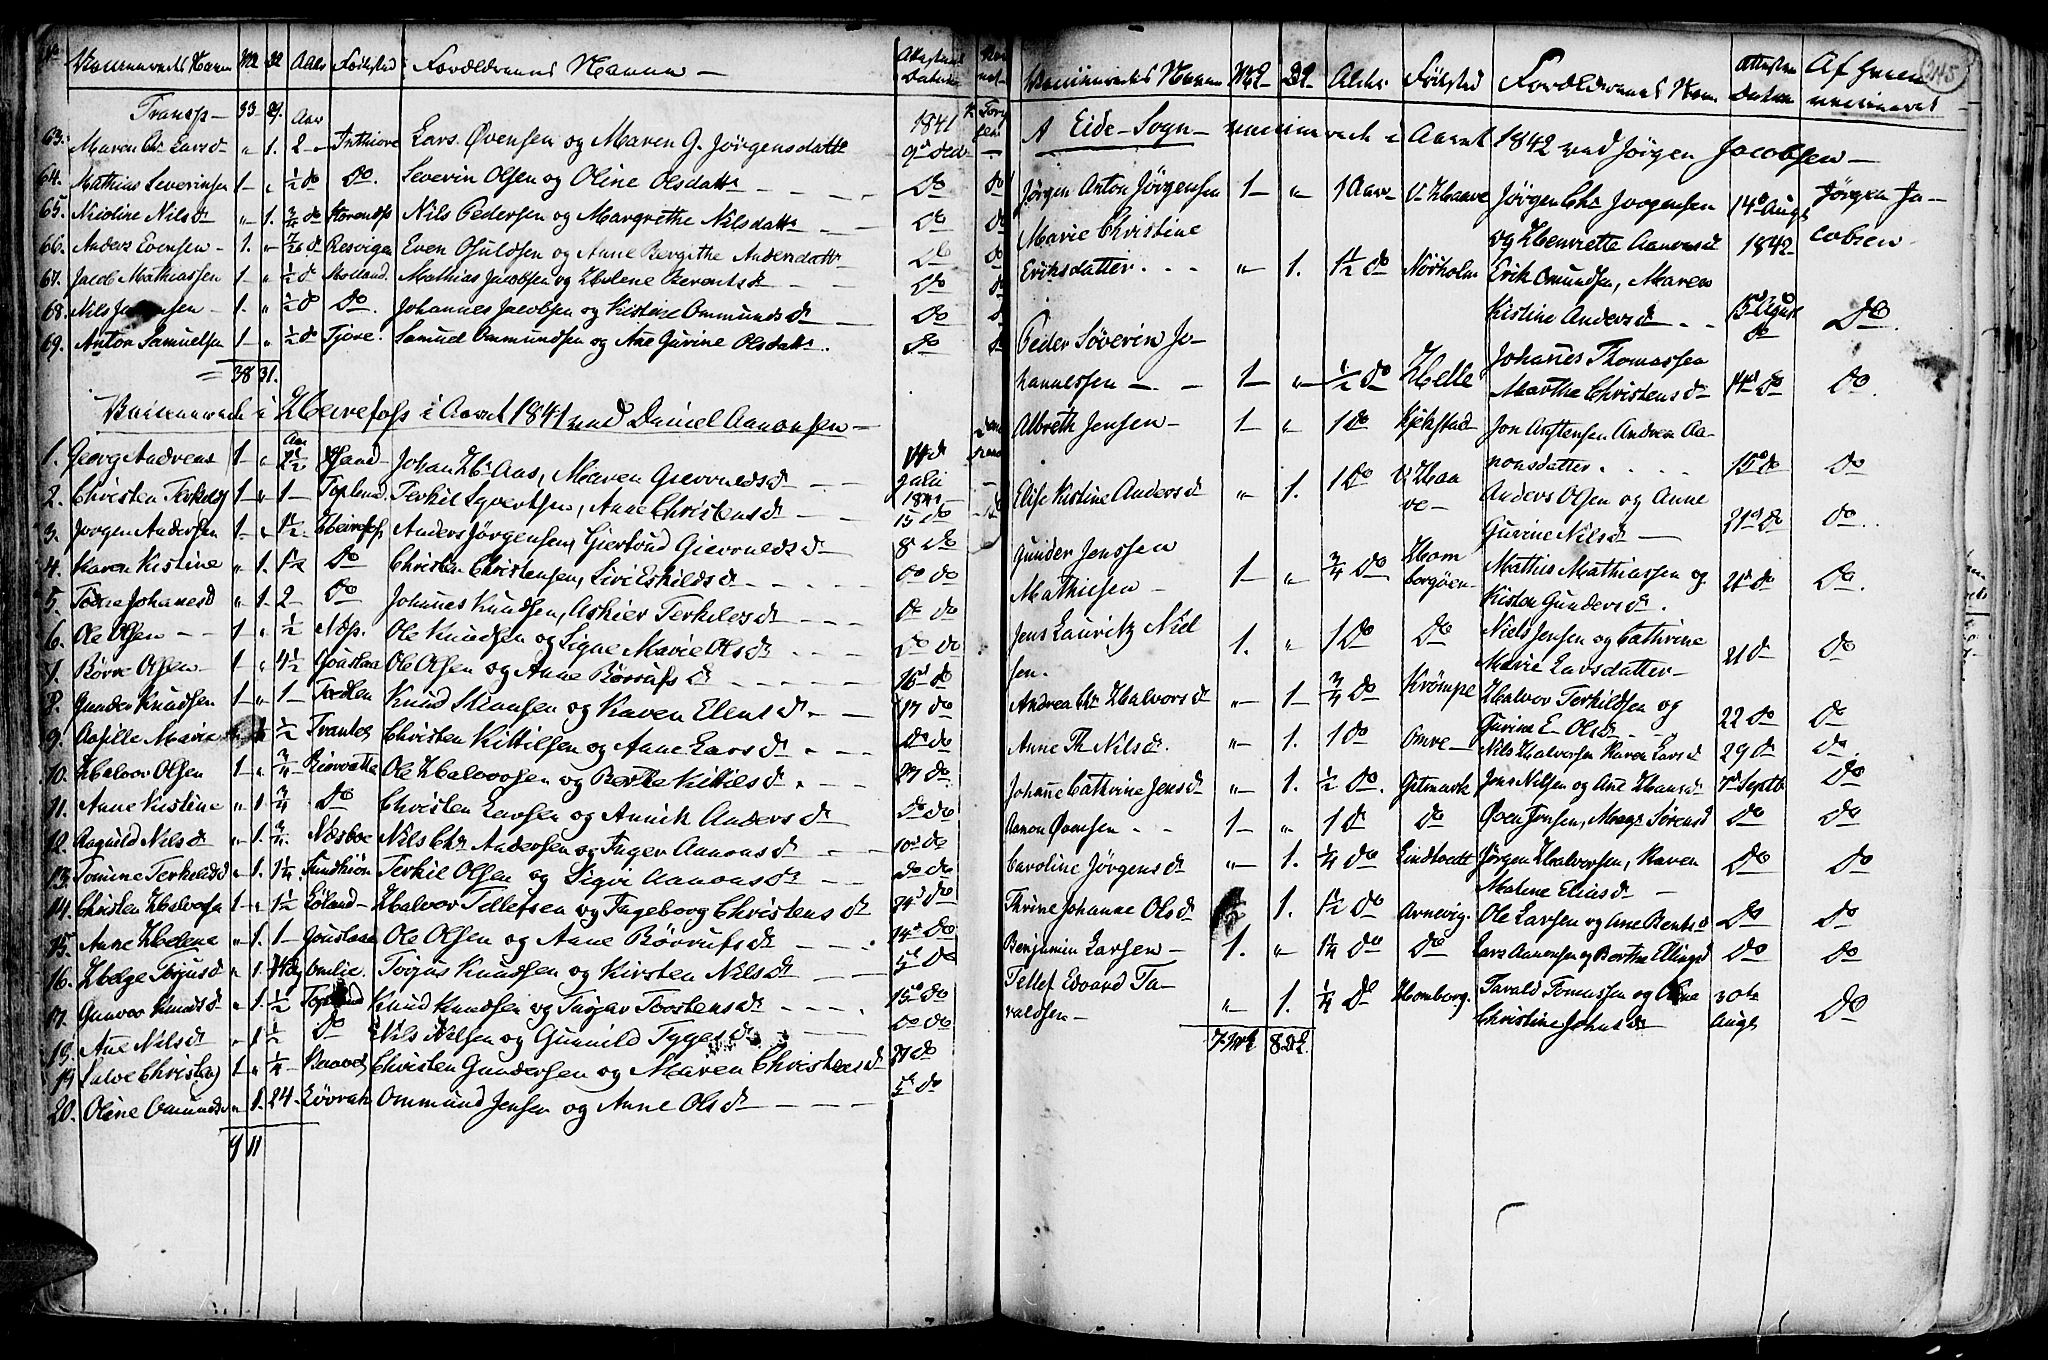 No Vaccineredes Navne M. Q. Alder Fødested Forældrenes Navne — Attestens Datum
Transp— 33 29. Aar 1841
63. Maren Chr Larsd „ 1. 2 „ Inthiore Lars Øvensen og Maren G. Jørgensdattr 9d Decbr —
64. Mathias Severinsen 1 — „ ½ do Do. Severin Olsen og Oline Olsdattr — Do Do
65. Nicoline Nilsd „ 1. ¾ do Nils Pedersen og Margrethe Nilsdattr — Do Do
66. Anders Evensen — 1. „ Resvigen Even Osuldsen og Anne Bergithe Andersdattr Do Do
67. Jacob Mathiassen 1 — „ ½ d Molland Mathias Jacobsen og Helene Berentsd Do Do
68. Nils 1. „ ½ do Do. Johannes Jacobsen og Kistine Ommundsd — Do D
69. Anton Samuelsen 1 — „ ½ do Tjore. Samuel Ommundsen og Ane Gurine Olsdattr. Do Do
= 38 31.
Vaccinerede i Heirefoss i Aaret 1841 ved Daniel Aanonsen —
1. Georg Andreas 1 — „ 2½ Sand Johan Hr Aas, Maren Gievoldsd — 14d Julii 1841
2. Christen Terkels 1 — „ 1 — Topland Terkil Syvertsen, Anne Christensd — 15 do
3. Jørgen Andersen 1 — „ 1½. Heirefos Anders Jørgensen, Giertrud Gievoldsd — 8 do
4. Karen Kistine „ 1. Do Christen Christensen, Sivi Eskildsd — do do
5. Johanesd „ 1. 2 — Do Johannes Knudsen, Askier Terkelsd — do do
6. Ole Olsen — — 1 „ ½ Næss. Ole Knudsen og Signe Marie Olsd — do do
7. Børre Olsen — 1 — „ 4½ Ole Olsen og Anne Børrufsd — 16d do
8. Gunder Knudsen 1 — „ 1 — Knud Stiansen og Karen Ellensd — 17 do
9. Marie ½ Tranlos Christen Kittilsen og Anne Larsd — do do
10. Halvor Olsen 1 — „ ¾ Ole Halvorsen og Berthe Kittilsd — 27 do
11. Anne Kistine „ 1 ¾ Do Christen Larsen og Annich Andersd — do do
12. Ragnild Nilsd „ 1. ¾. Næsboe Nils Chr Andersen og Inger Aanonsd — 10d do
13. Tomine Terkelsd „ 1. 1¼ Terkil Olsen og Sigri Aanonsd — do do
14. Christen Halvorsen 1 — „ 1½ Løland — Halvor Tellefsen og Ingeborg Christensd 24d do
15. Anne Helene „ 1. 1 — Ole Olsen og Anne Børrufsd — 14d do
16. Helge Torjusd „ 1. Omlie. Torjus Knudsen og Kirsten Nilsd — 5d do
17. Gunvor Knudsd „ 1. ½ Topland Knud Knudsen og Torstensd — 15d do
18. Ane Nilsd „ 1 ½ Do Nils Nilsen og Gunnild Tygesd do do
19. Salve Christens 1 „ ¼ Christen Gundersen og Maren Christensd 27 do
20. Oline Omundsd „ 1. 24. Ommund Jensen og Anne Olsd — 5d do
9 11

245
Vaccineredes Navne M.Q. Qd. Alder Fødested Forældrenes Navn. Attestens Datum Af hvem vaccineret
A Eide Sogn — vaccinerede i Aaret 1842 ved Jørgen Jacobsen —
Jørgen Anton Jørgensen 1 — „ 1 Aar V. Haave Jørgen Chr Jørgensen 14d Augs Jørgen Ja-
Marie Christine og Henriette Aanonsd 1842 cobsen —
Eriksdatter . . . „ 1. 1½ do Nørholm Erik Omundsen, Maren
Kistine Andersd . . 15d August do Do.
Peder Søverin Jo- Johannes Thomassen
hannessen — 1 — „ ½ do Helle Marthe Christensd 14d do Do.
Albreth Jensen — 1 — „ 1 Do Kjekstad Jon Austensen Andrea Aa-
nonsdatter. . . . 15d do Do
Elise Kistine Andersd „ 1. 1 Do V. Haa- Anders Olsen og Anne
ve — Gurine Nilsd — 21d do Do.
Gunder Jenssen Hom- Mathis Mathiassen og
Mathiesen — 1 — „ ¾ Do borgøen Kisten Gundersd. 21d do Do.
Jens Lauritz Niel- Niels Jensen og Cathrine
sen. 1. „ 1 Do Do Marie Larsdatter — 21 d Do
Andrea Chr Halvorsd „ 1 — ¾ Do Krømpe Halvor Terkildsen og
Gurine E. Olsd — 22 do Do
Anne Th Nilsd. „ 1. 1 do Omre — Nils Halvorsen Karen Larsd 29 d Do.
Johane Cathrine Jensd „ 1. ½ Do. Gitmark Jens Nilsen og Ane Hansd 7d Septb Do
Aanon Øvensen . . 1 — „ 1 d Do Øven Jensen, Mag. Sørensd Do Do
Caroline Jørgensd „ 1. ¼ do Lindtveit Jørgen Halvorsen, Karen
Malene Eliasd — Do Do
Thrine Johanne Olsd 1. 1½ do Arnevig. Ole Larsen og Ane Bentsd Do Do
Benjamin Larsen — 1. „ 1¼ do Do Lars Aanonsen og Berthe Ellingsd do Do
Tellef Edvard Ta- Tarald Tomassen og
raldsen — „ 1. ¼ D Homborg. Christine Johnsd 30te Augs Do
7 Mk 8 Q.